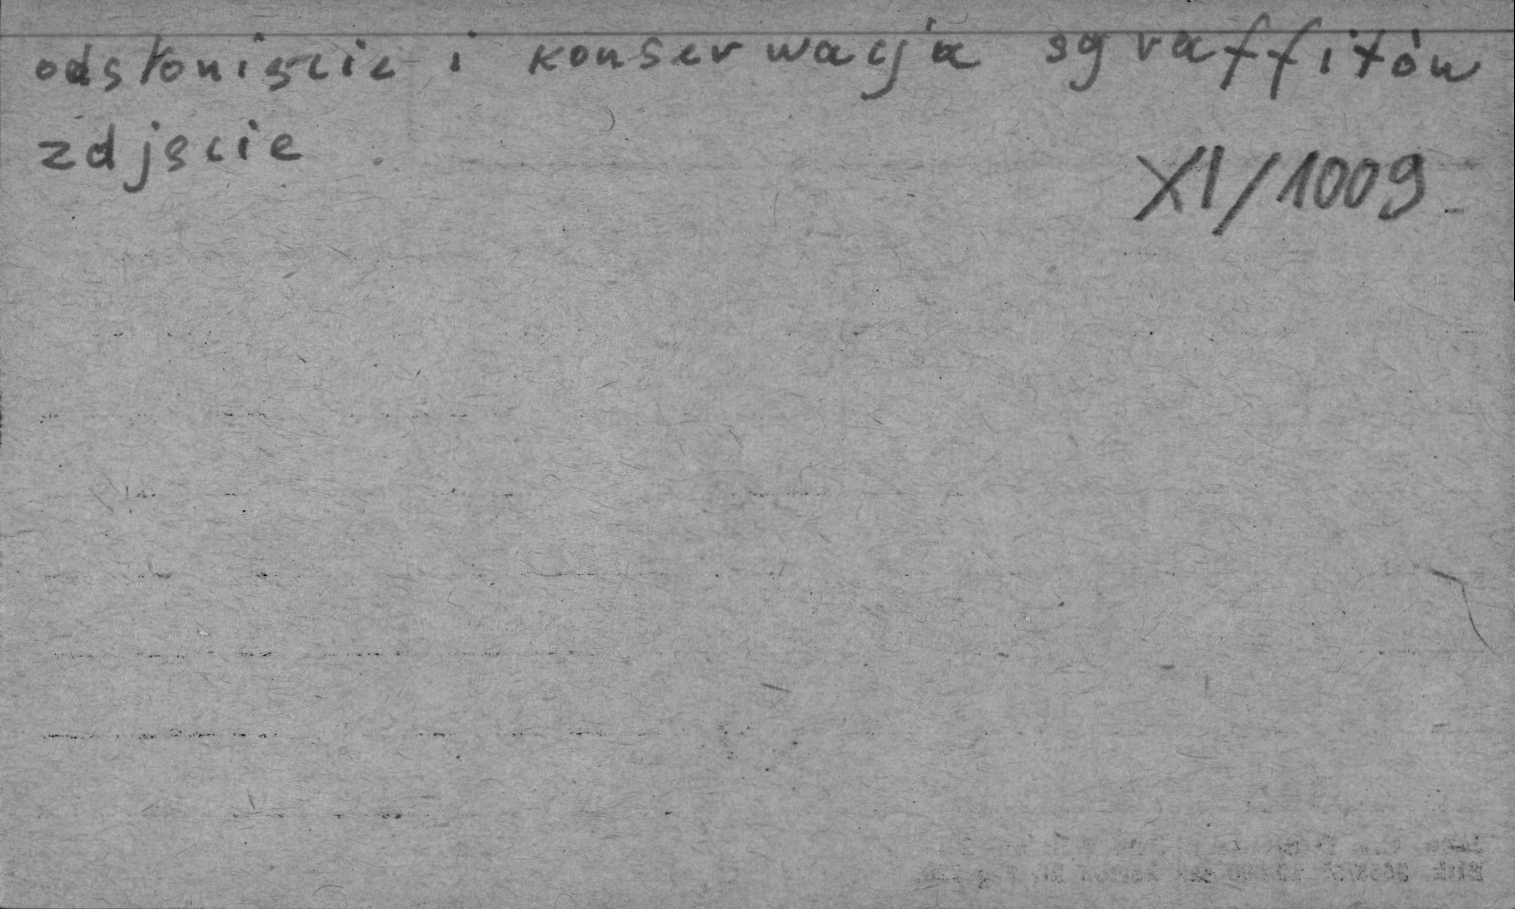 odsłonięcie i konserwacja sgraffitów
zdjęcie
XI/1009